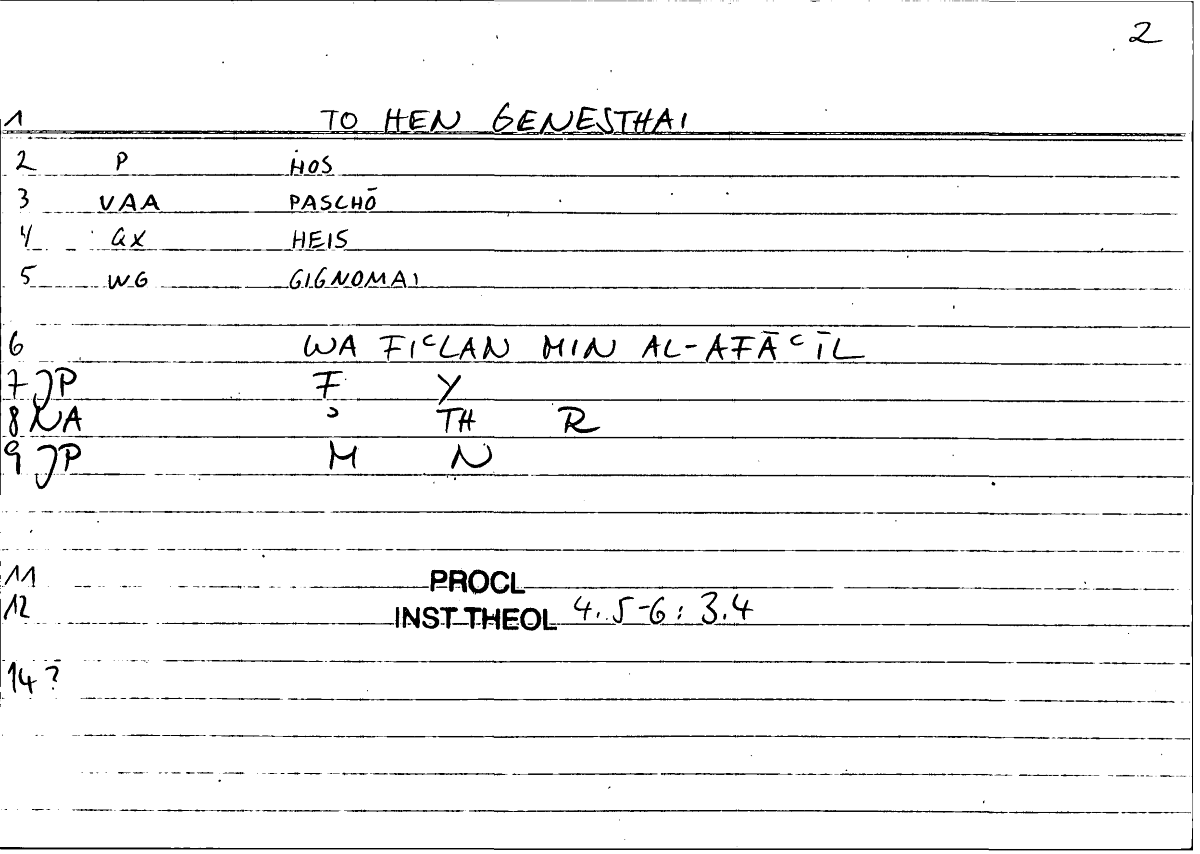 2
1 TO HEN GENESTHAI
2 P HOS
3 VAA PASCHŌ
4 QX HEIS
5 WG GIGNOMAI
6 WA FIᶜLAN MIN AL-AFĀᶜĪL
7 JP F Y
8 NA ʾ TH R
9 JP M N
11 PROCL
12 INST THEOL 4. 5-6 : 3.4
14 ?